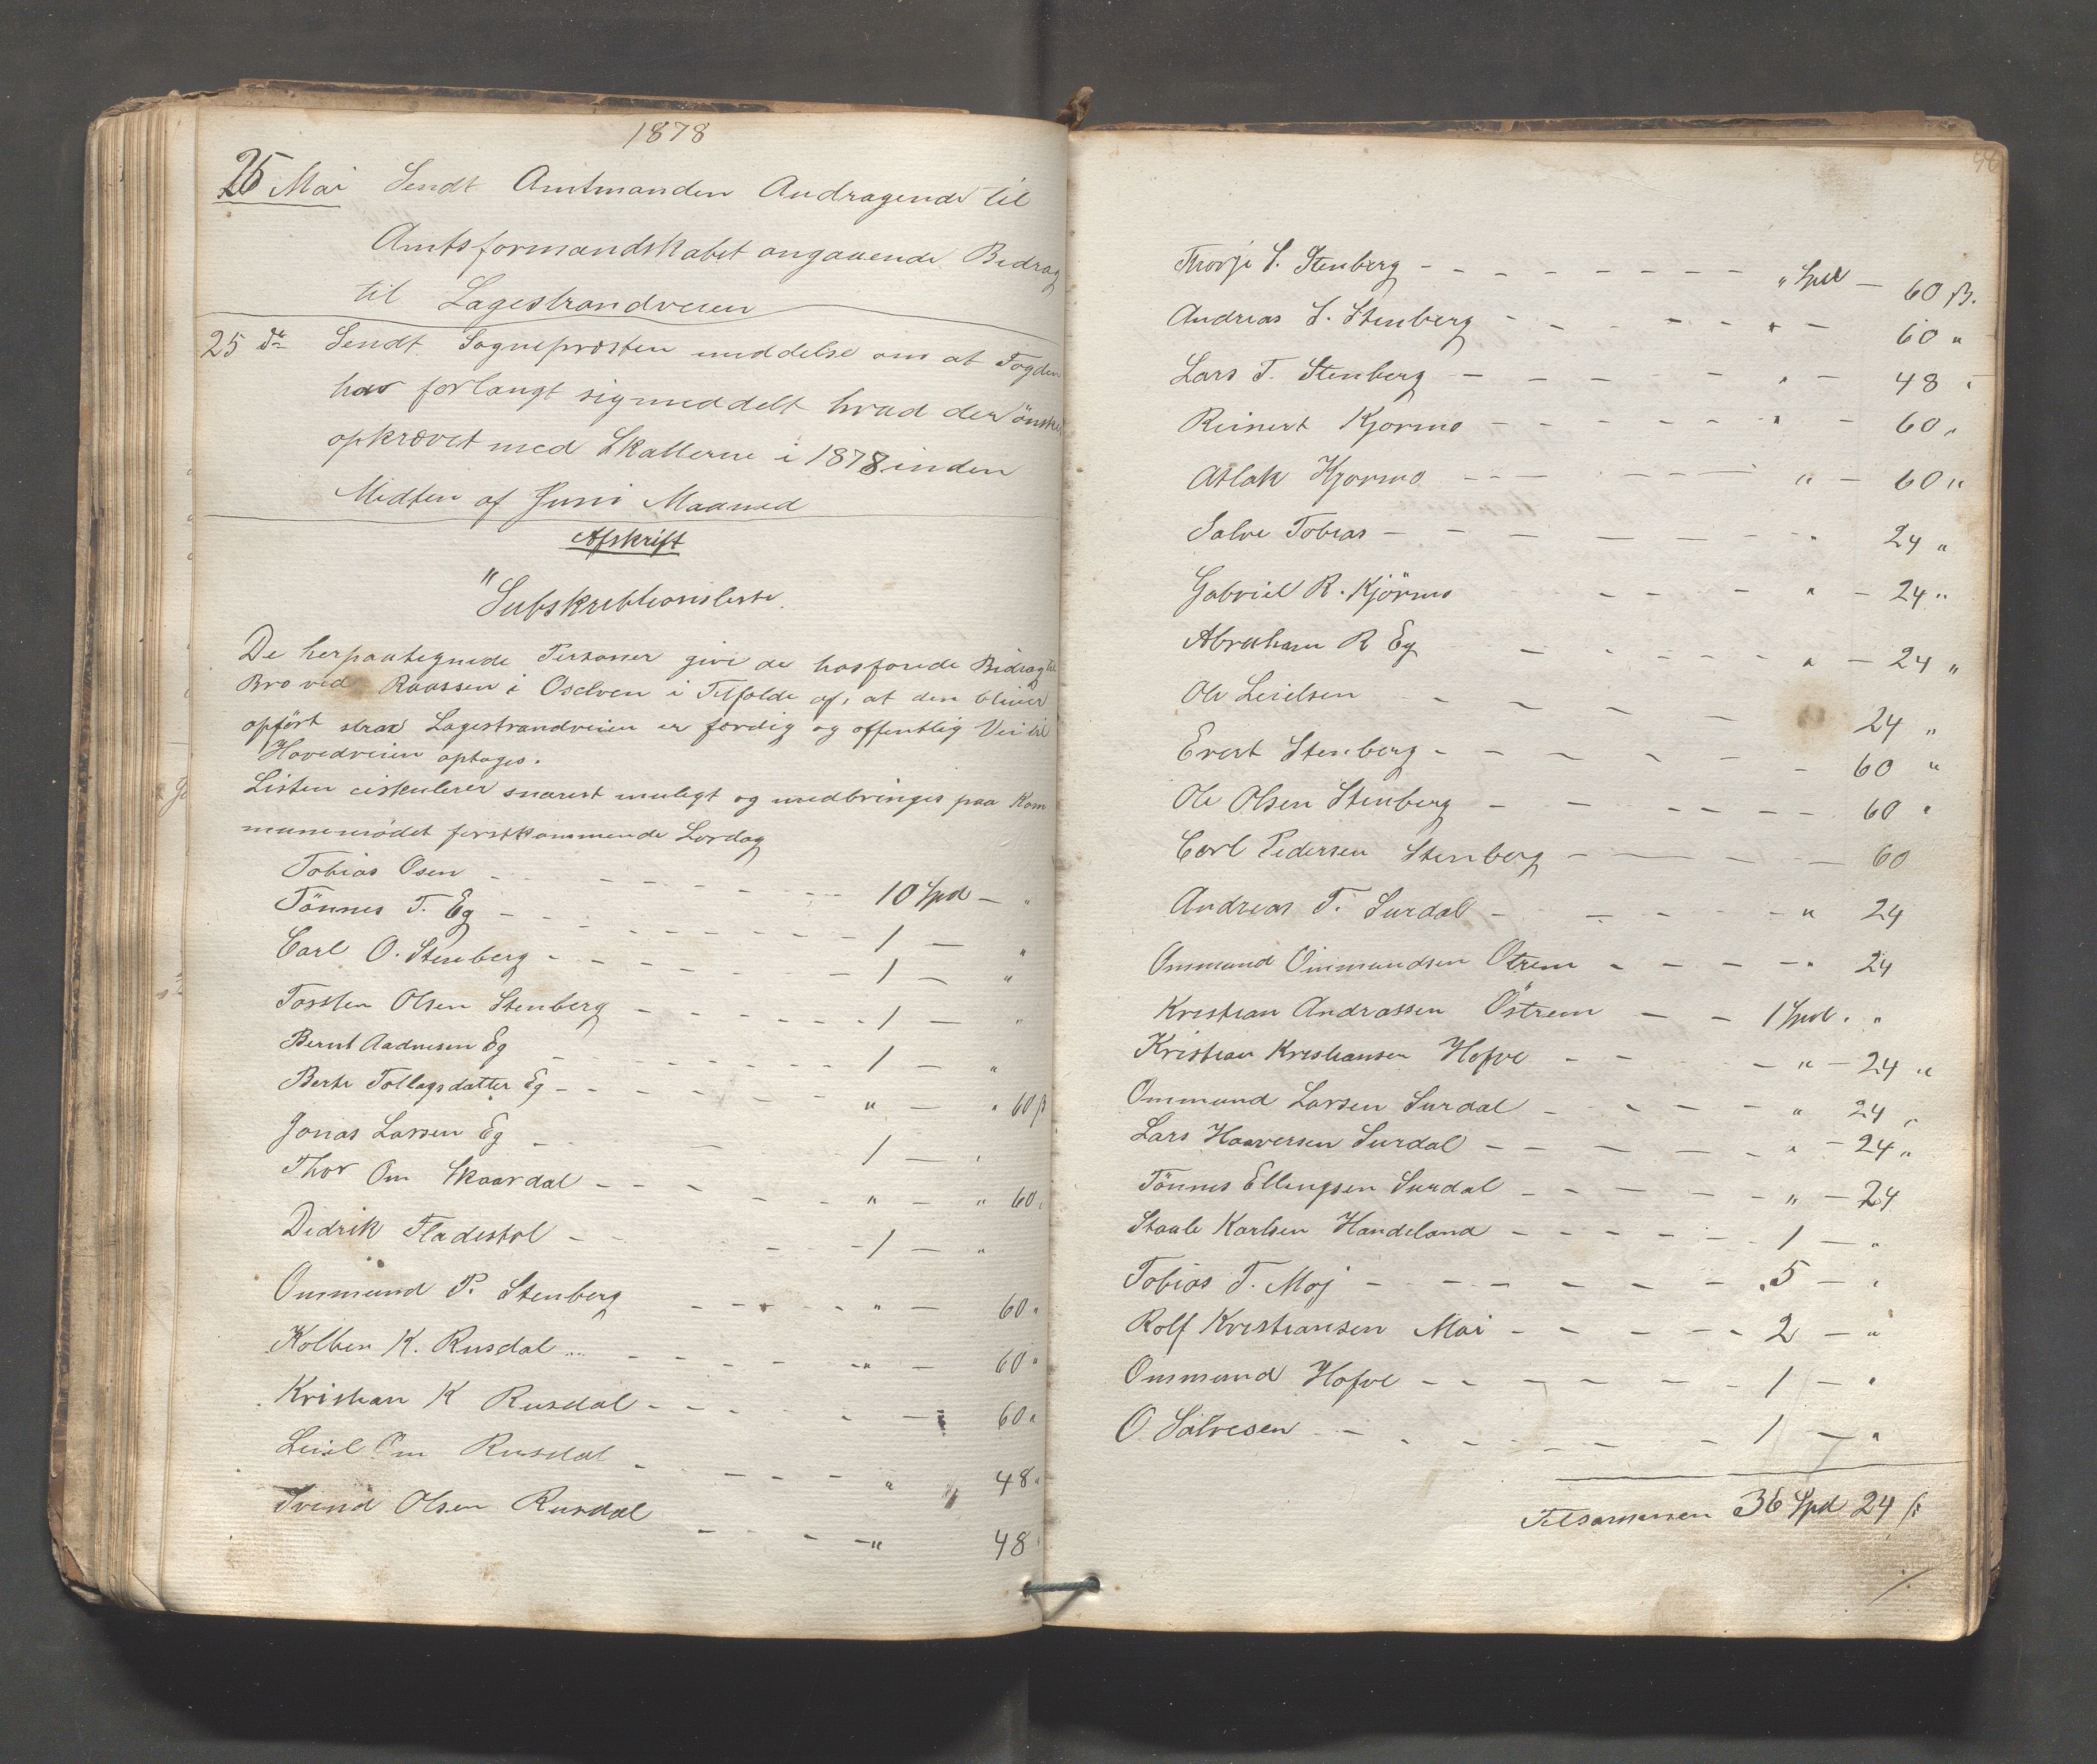 1878
25 Mai Sendt Amtmanden Andragende til
Amtsformandskabet angaaende Bidrag
til Lagestrandveien
25 d° Sendt Sognepræsten meddelse om at Fogden
har forlangt sig meddelt hvad der önskes
opkrævet med Skatterne i 1878 inden
Midten af Juni Maaned
Afskrift
"Subskribtionsliste.
De herpaategnede Personer give de hosförede Bidrag til
Bro ved Raassen i Oselven i Tilfælde af, at den bliver
opfört strax Lagestrandveien er færdig og offentlig Vei til
Hovedveien optages.
Listen cirkulerer snarest muligt og medbringes paa Kom
munemödet förstkommende Lördag
Tobias Osen - - - - - - 10 Spd — "
Tönnes T. Eg - - - - - - 1 — "
Carl O. Stenberg - - - - - 1 — "
Torsten Olsen Stenberg - - - - - 1 — "
Bernt Aadnesen Eg - - - - - 1 — "
Berte Tollagsdatter Eg - - - - - " — " 60 ß
Jonas Larsen Eg - — 1 — "
Thor Om Skaardal - - - - - " — " 60 "
Didrik Fladestøl - - - - 1 — "
Ommund P. Stenberg - - - - " — 60 "
Kolben K. Rusdal - - - - - " — 60 "
Kristian K Rusdal - - - - — 60 "
Leiel Om Rusdal - - - - " 48 "
Svend Olsen Rusdal - - - " 48 "
46
Thorje S. Stenberg - - - - - - - - " Spd — 60 ß.
Andreas S. Stenberg - - - - - " — 60 "
Lars T. Stenberg - - - - - " — 48 "
Reinert Kjörmo - - - - - - " — 60 "
Atlak Kjörmo - - - - - — " — 60 "
Salve Tobias - - - - - - - " 24 "
Gabriel R. Kjörmo - - - - " — 24 "
Abraham R Eg - - - - - - " — 24 "
Ole Leielsen - - - - - - 24 "
Evert Stenberg - - - - - - - 60 "
Ole Olsen Stenberg - - - - - - 60 "
Carl Pedersen Stenberg - — - - — 60
Andreas T. Surdal - - - - - " 24
Ommund Ommundsen Ötrem - - - - " 24
Kristian Andrassen Östrem - - 1 Spd. "
Kristian Kristiansen Hofve - - - " — 24 "
Ommund Larsen Surdal - - - - " 24 "
Lars Haaversen Surdal - - - - - - " — 24 "
Tönnes Ellingsen Surdal - - - - - " — 24
Staale Karlsen Handeland - - - - - - 1 — "
Tobias T. Moj - - - - - - - 5 — "
Rolf Kristiansen Moi - - - - - 2 — "
Ommund Hofve - - - - - - - 1 — "
O Salvesen - - - - - - - 1 — "
Tilsammen 36 Spd 24 ß